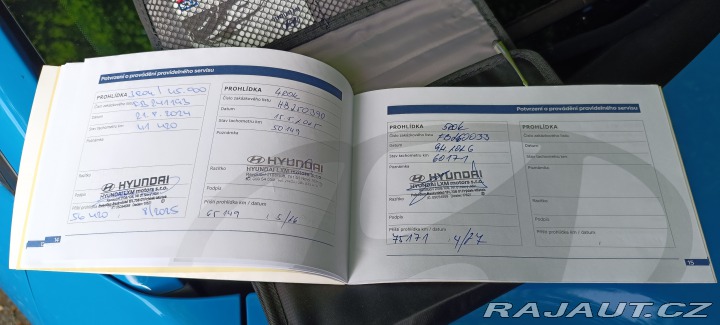 Potvrzení o provádění pravidelného servisu
PROHLÍDKA 3ROK / 45.000
Číslo zakázkového listu
Datum 21.8.2024
Stav tachometru km 41 420
Poznámka
Razítko
HYUNDAI
HYUNDAI LXM motors s.r.o.
Podpis
Příští prohlídka km / datum
56 420 8/2025
14
PROHLÍDKA 4ROK
Číslo zakázkového listu
HB250390
Datum
Stav tachometru km
50149
Poznámka
Razítko
HYUNDAI
HYUNDAI LXM motors s.r.o.
Podpis
Příští prohlídka km / datum
65149 5/26
Potvrzení o provádění pravidelného servisu
PROHLÍDKA 5ROK
Číslo zakázkového listu
Datum
Stav tachometru km 60171
Poznámka
Razítko
HYUNDAI
HYUNDAI LXM motors s.r.o.
Podpis
Příští prohlídka km / datum
75171 4/27
PROHLÍDKA
Číslo zakázkového listu
Datum
Stav tachometru km
Poznámka
Razítko
Podpis
Příští prohlídka km / datum
15
RAJAUT.CZ